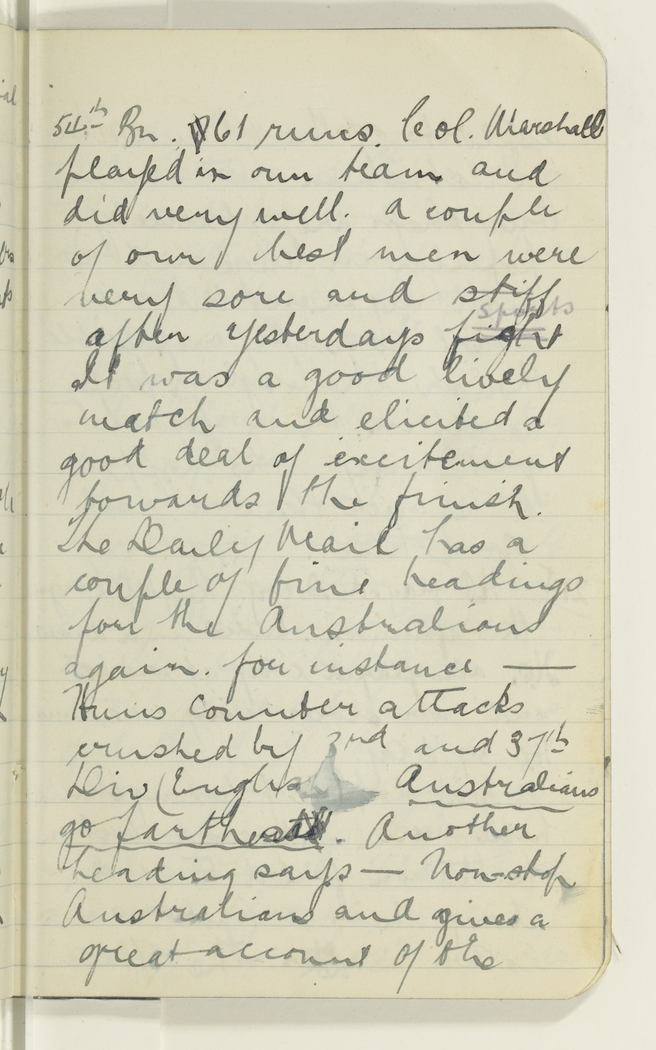 54th Bn. 161 runs. Col. Marshall
played in our team and
did very well. A couple
of our best men were
very sore and stiff
after yesterdays fight sports
It was a good lively
match and elicited a
good deal of excitement
towards the finish.
The Daily Mail has a
couple of fine headings
for the Australians
again. for instance —
Huns counter attacks
crushed by 2nd and 37th
Div (English Australians
go farthest. Another
heading says — Non-stop
Australians and gives a
great account of the